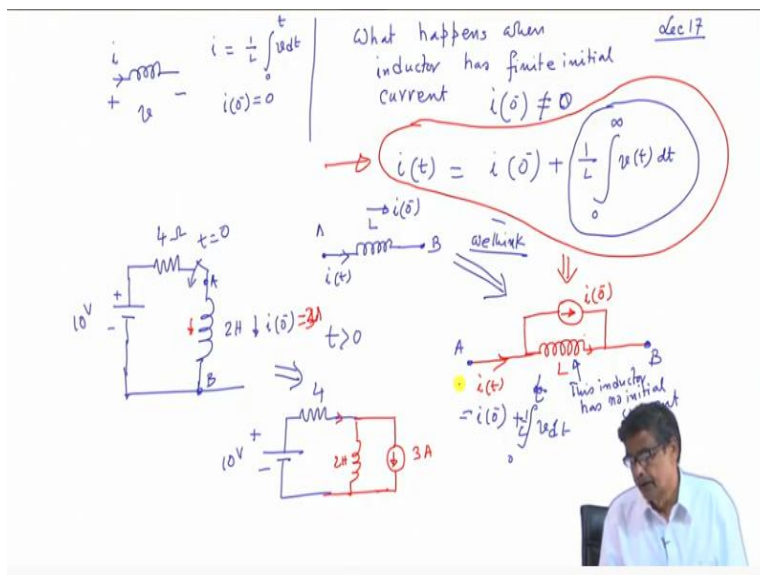 i
+ v -
i = 1/L ∫₀ᵗ v dt
i(0⁻) = 0
What happens when
inductor has finite initial
current i(0⁻) ≠ 0
Lec 17
i(t) = i(0⁻) + 1/L ∫₀^∞ v(t) dt
4Ω t=0
A
10V
+
-
2H ↓ i(0⁻) = 3A
B
t>0
L → i(0⁻)
A B
i(t)
we think
i(0⁻)
A B
L
i(t)
= i(0⁻) + 1/L ∫₀ᵗ v dt
This inductor
has no initial
4
+
10V
-
2H
3A